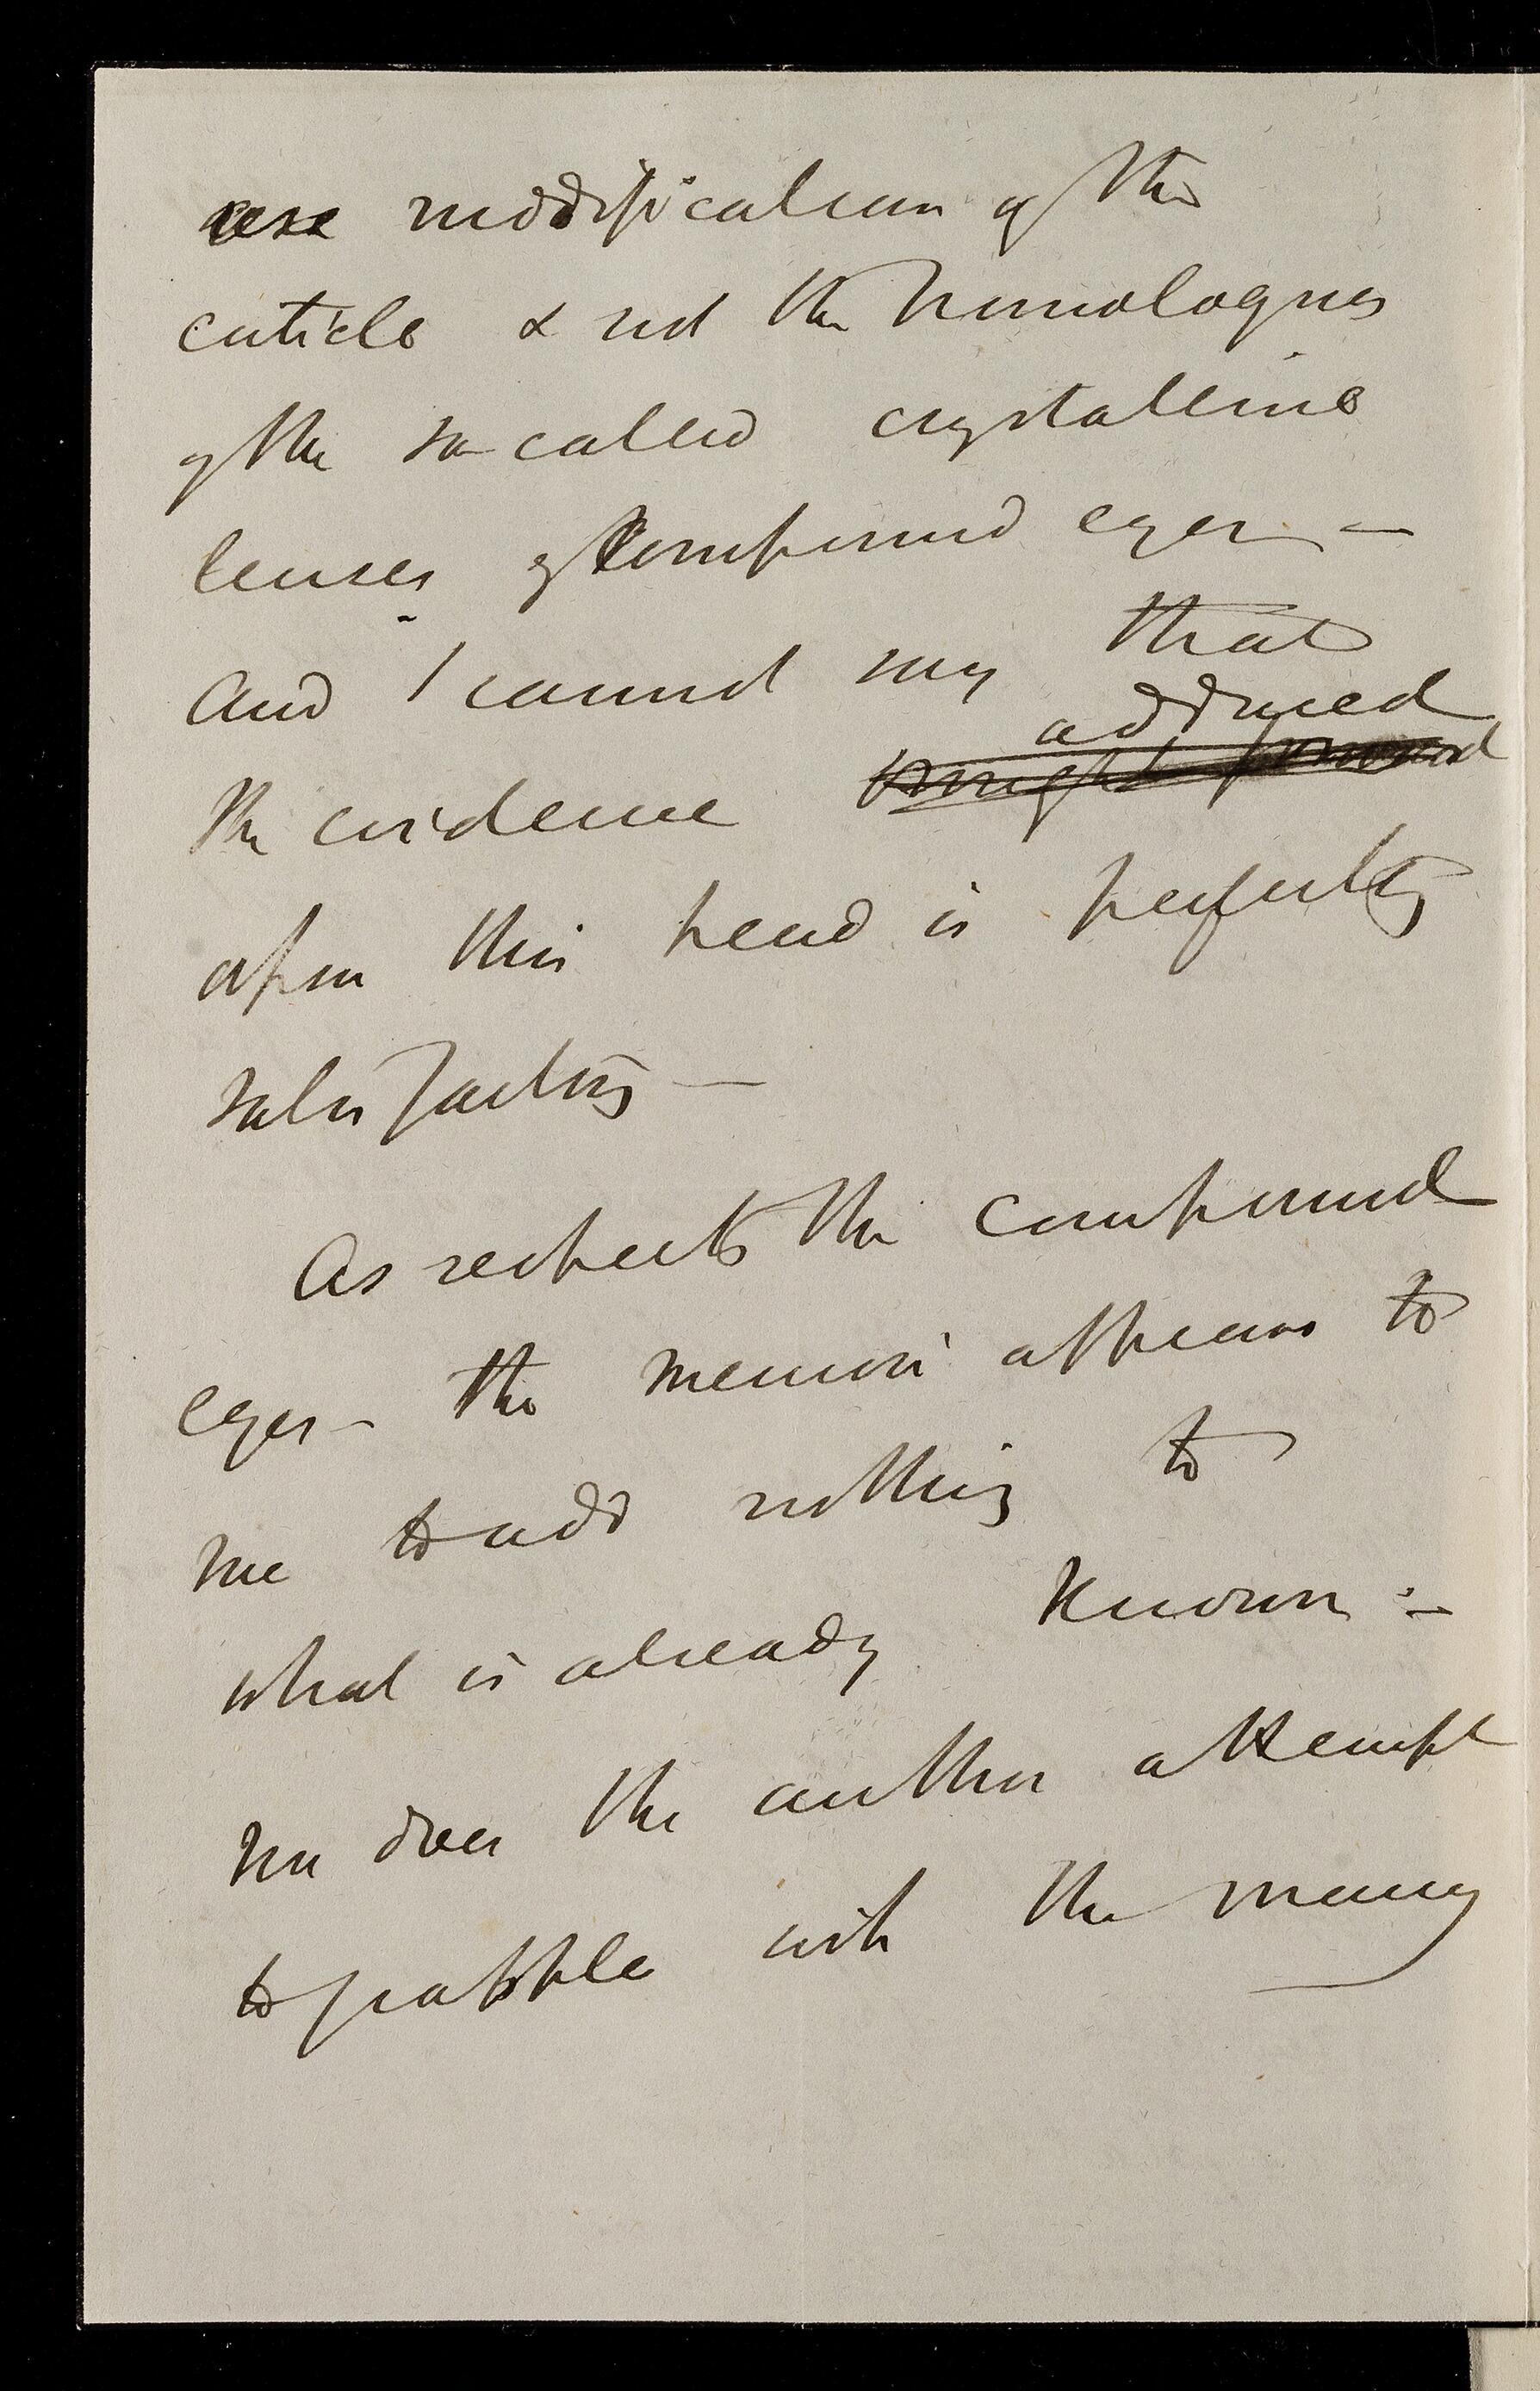 are modification of the
cuticle & not the homologues
of the so called crystalline
lenses of compound eyes –
And I cannot say that
adduced
the evidence brought forward
upon this head is perfectly
satisfactory –
As respects the compound
eyes – the memoir appears to
me to add nothing to
what is already known :–
nor does the author attempt
to grapple with the many